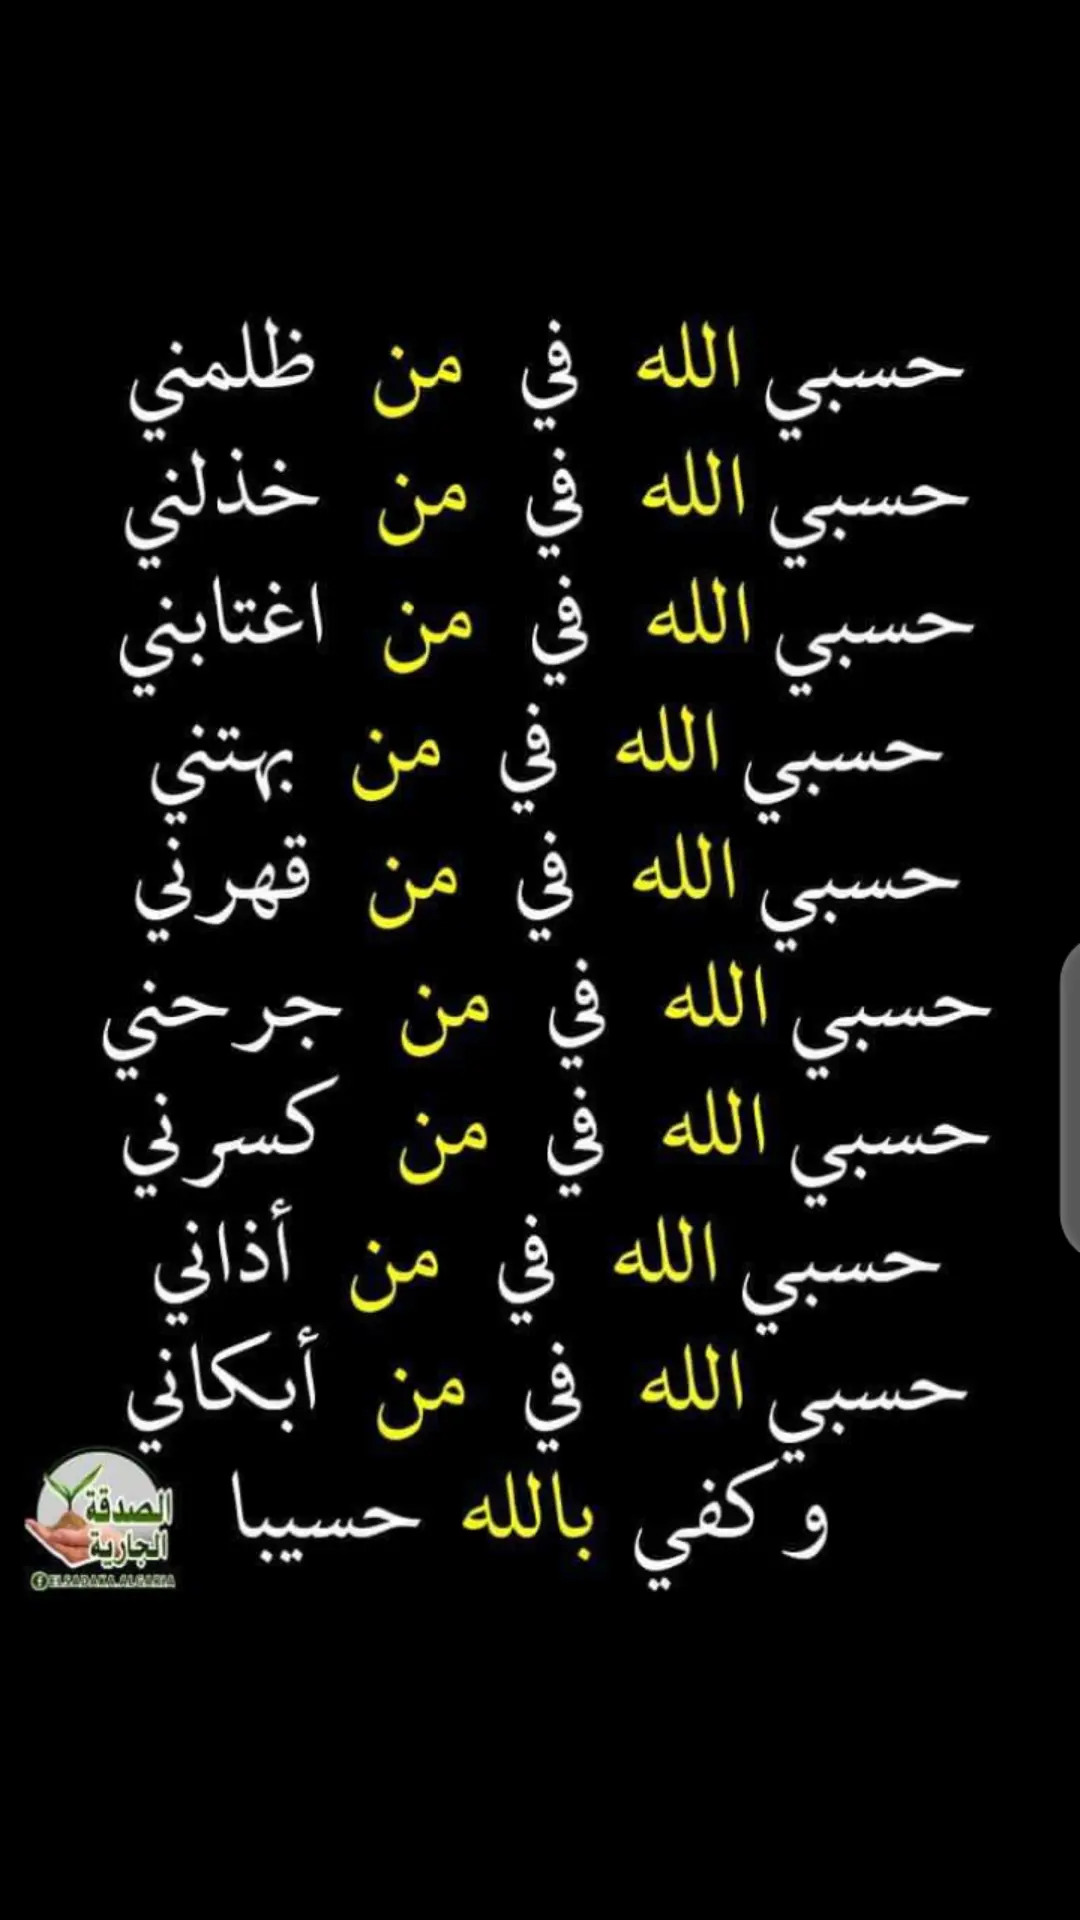 حسبي الله في من ظلمني
حسبي الله في من خذلني
حسبي الله في من اغتابني
حسبي الله في من بهتني
حسبي الله في من قهرني
حسبي الله في من جرحني
حسبي الله في من كسرني
حسبي الله في من أذاني
حسبي الله في من أبكاني
و كفي بالله حسيبا
الصدقة
الجارية
ELSADAKA.ALGARIA